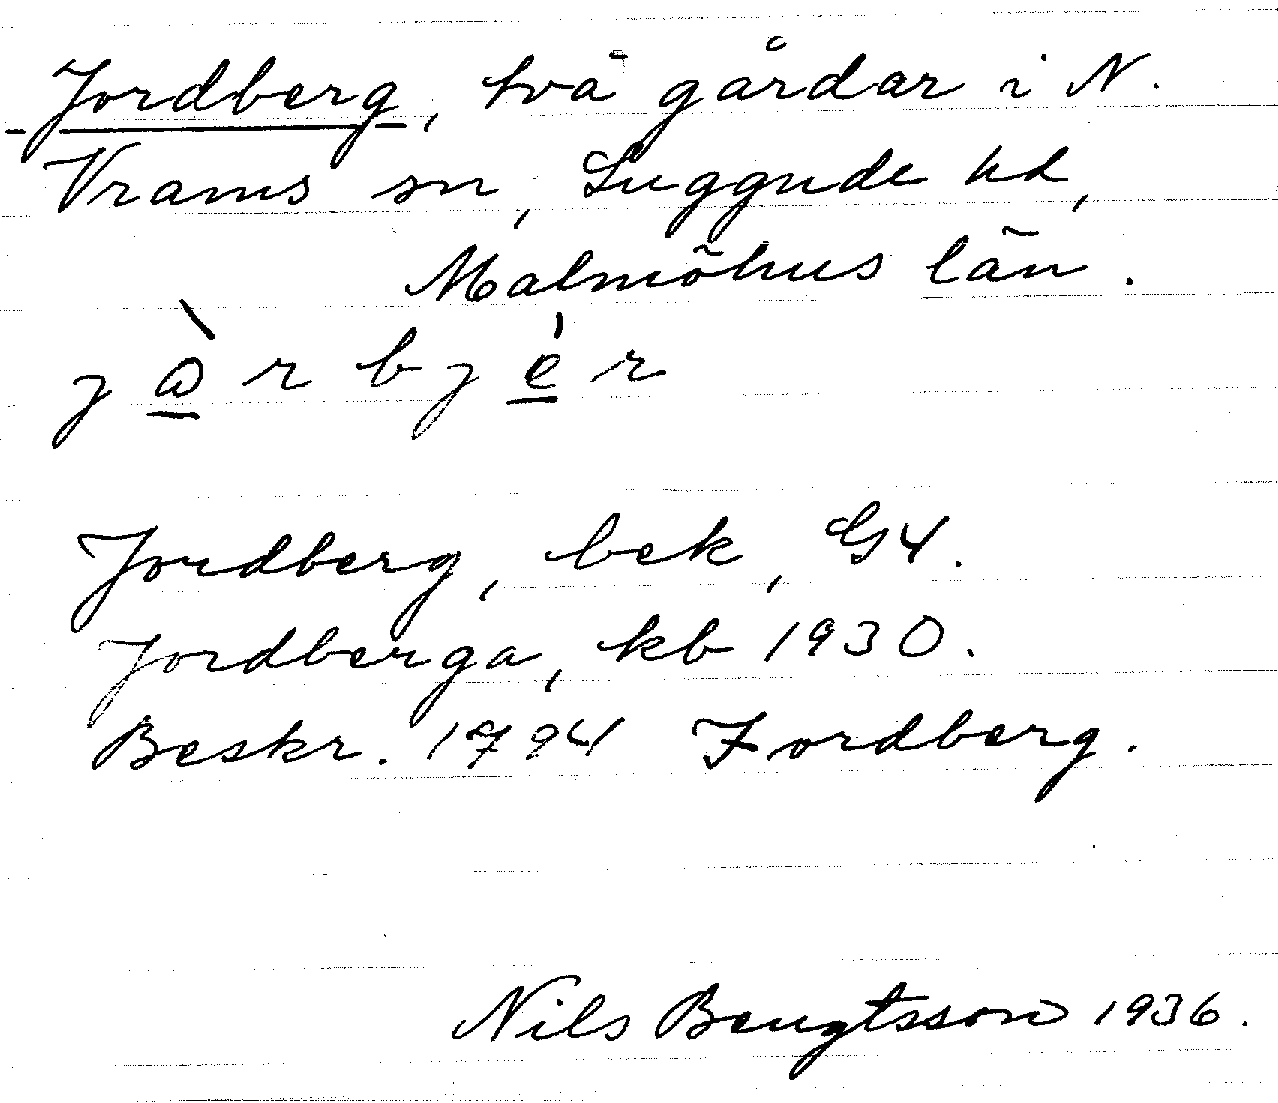 Jordberg, två gårdar i N.
Vrams sn, Luggude hd,
Malmöhus län.
j ὰ r b j é r
Jordberg, bek, G4.
Jordberga, kb 1930.
Beskr. 1794 Jordberg.
Nils Bengtsson 1936.